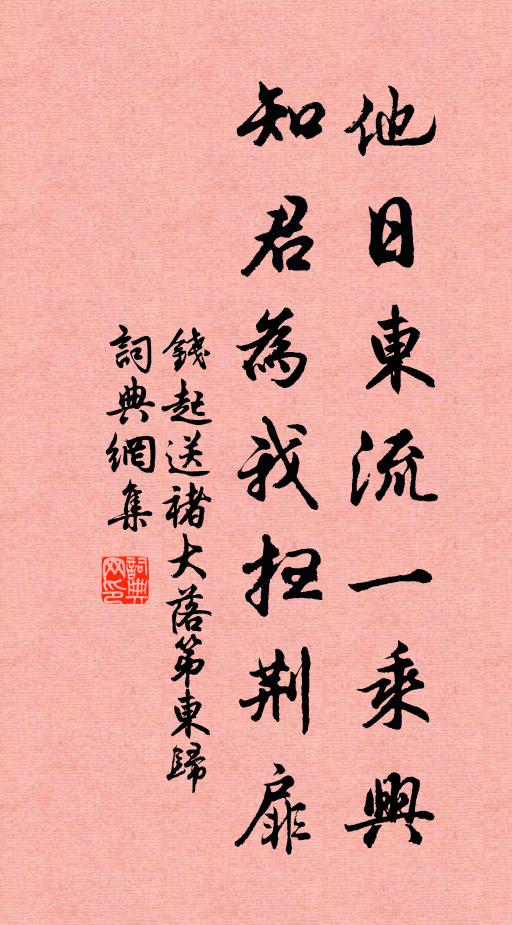 他日東流一乘興
知君為我扫荆扉
錢起送褚大落第東歸
詞典網集
詞典
网印